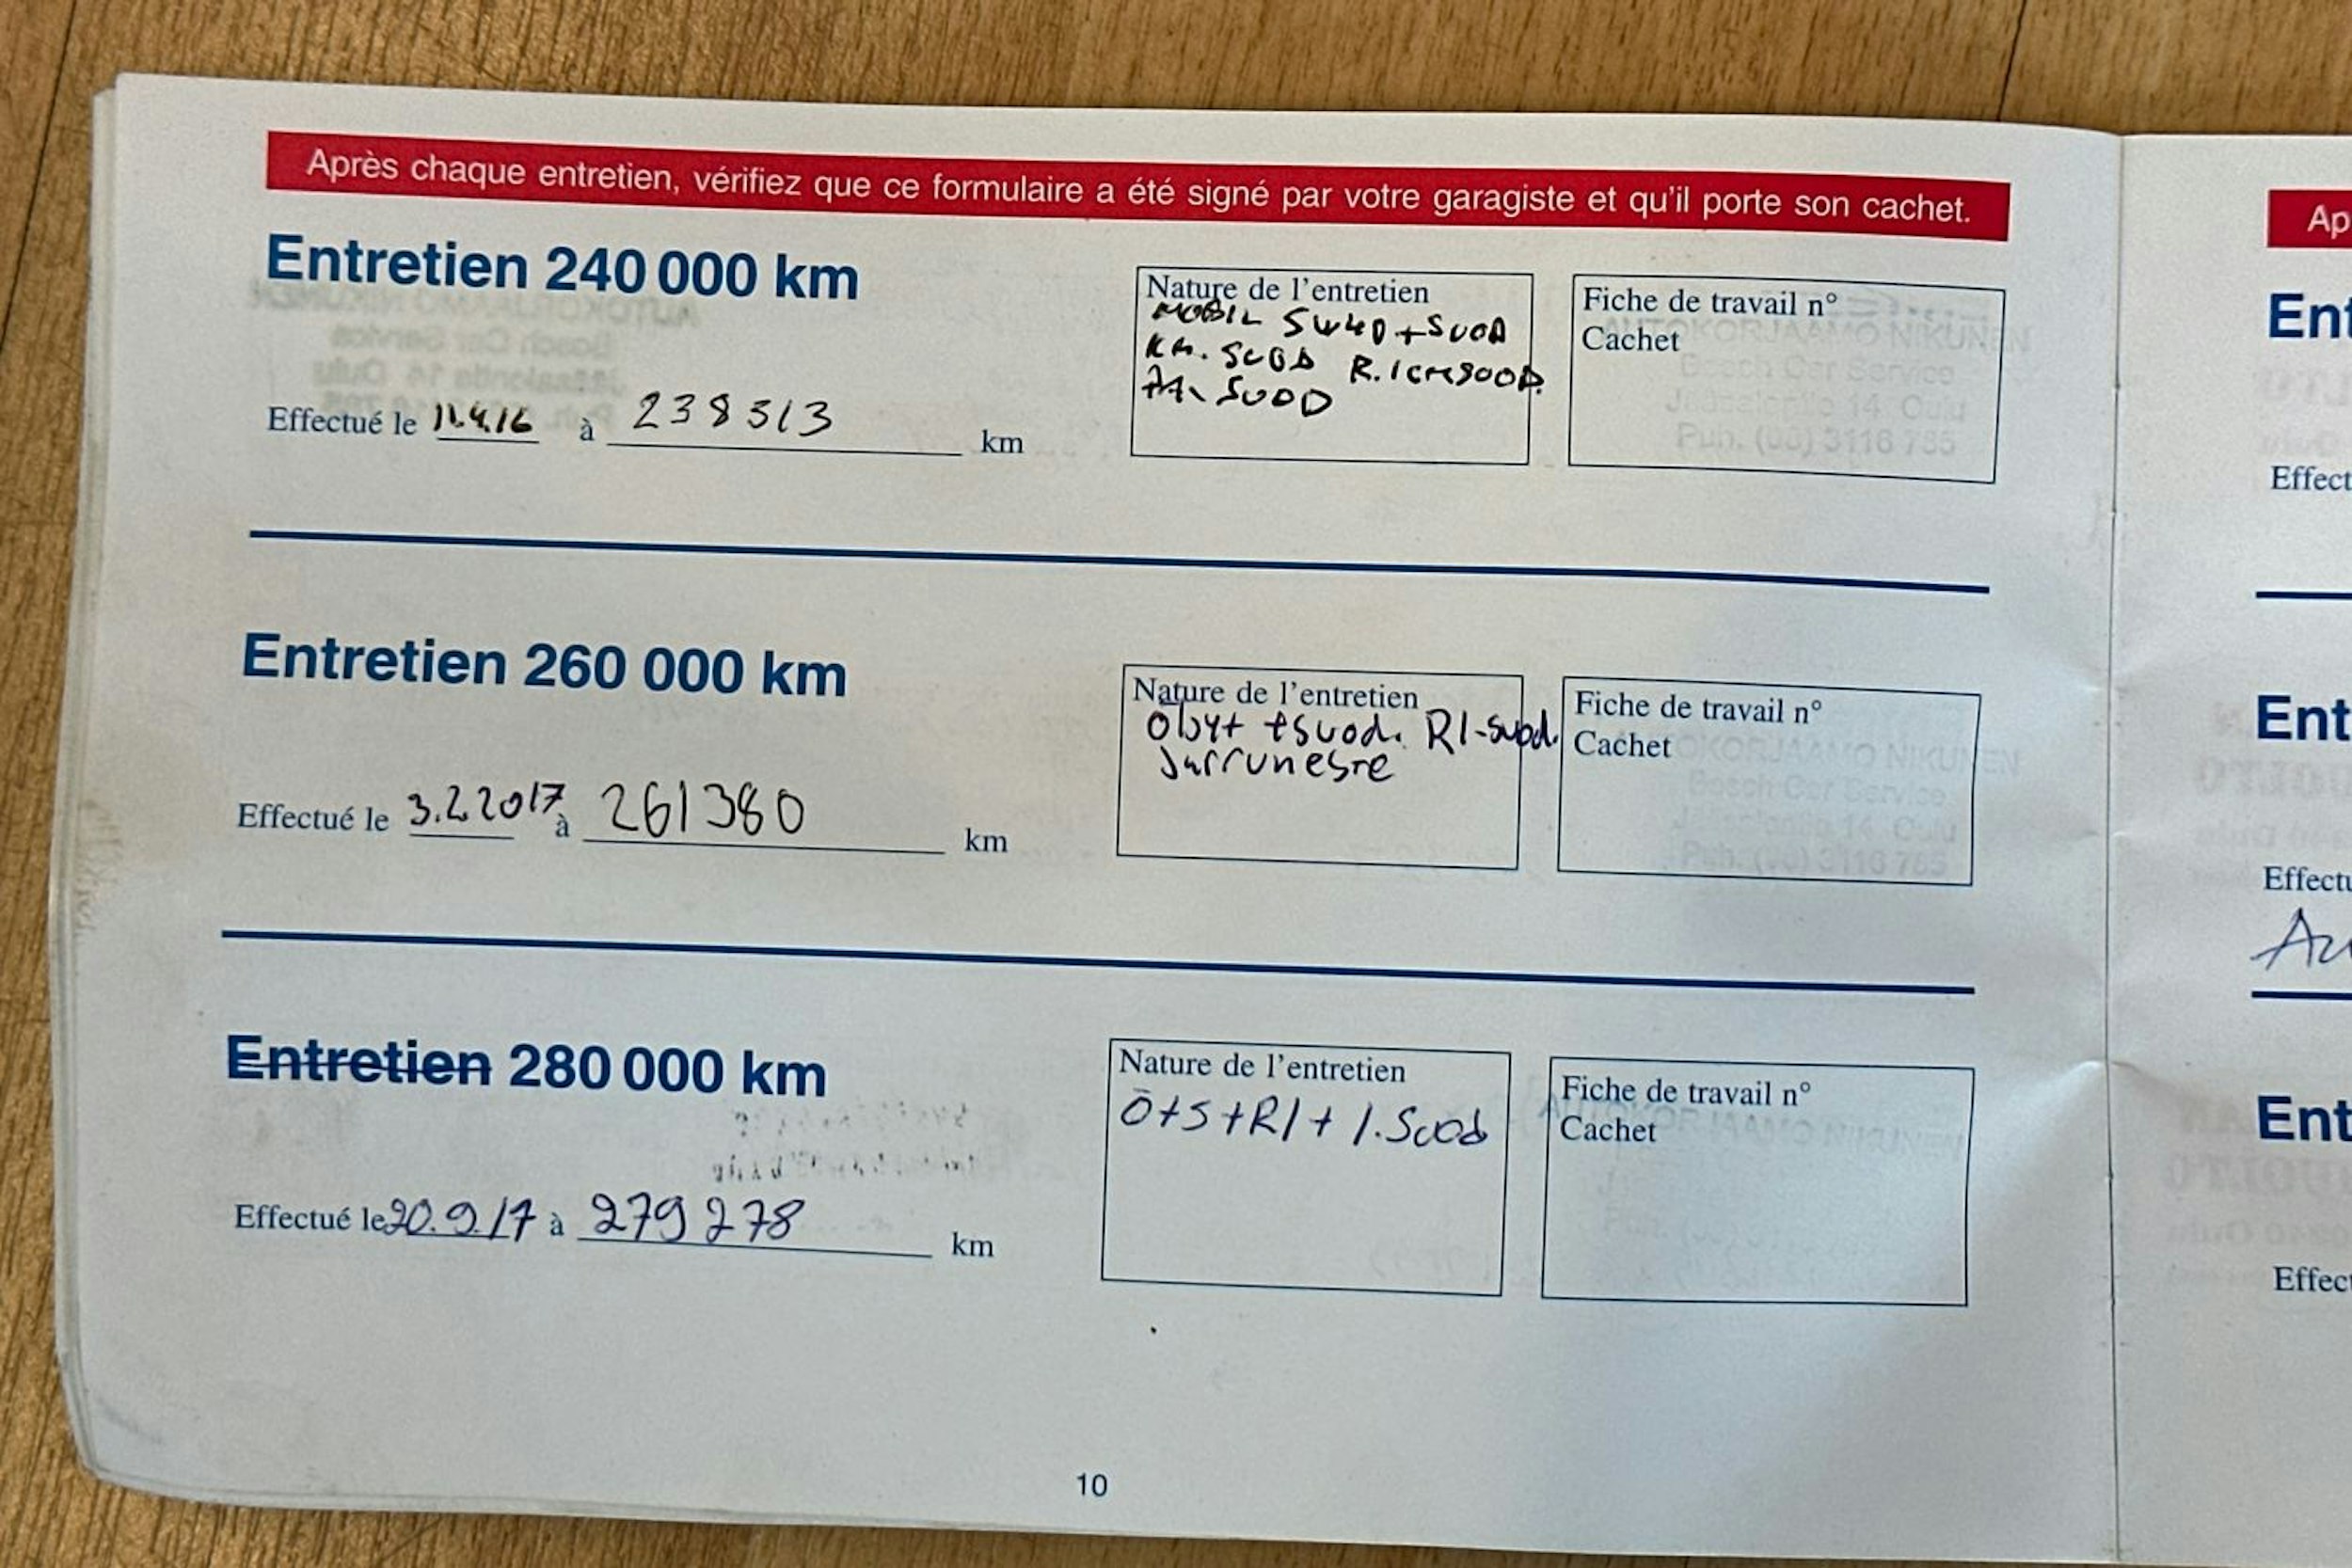 Après chaque entretien, vérifiez que ce formulaire a été signé par votre garagiste et qu'il porte son cachet.
Entretien 240 000 km
Nature de l'entretien
MOBIL 5W40 + SUOD
KA. SUOD R.ILMASUOD.
PA. SUOD
Fiche de travail n°
Cachet
AUTOKORJAAMO NIKUNEN
Bosch Car Service
Jääsalontie 14 Oulu
Puh. (08) 3116 785
Effectué le 11.4.16 à 238513 km
Entretien 260 000 km
Nature de l'entretien
Öljyt + suod. RI-suod.
Jarruneste
Fiche de travail n°
Cachet
AUTOKORJAAMO NIKUNEN
Bosch Car Service
Jääsalontie 14 Oulu
Puh. (08) 3116 785
Effectué le 3.2.2017 à 261380 km
Entretien 280 000 km
Nature de l'entretien
Ö+S+RI+ I.Suod
Fiche de travail n°
Cachet
AUTOKORJAAMO NIKUNEN
Effectué le 20.9.17 à 279278 km
10
Ap
Ent
Effect
Ent
Effectu
Au
Ent
Effect